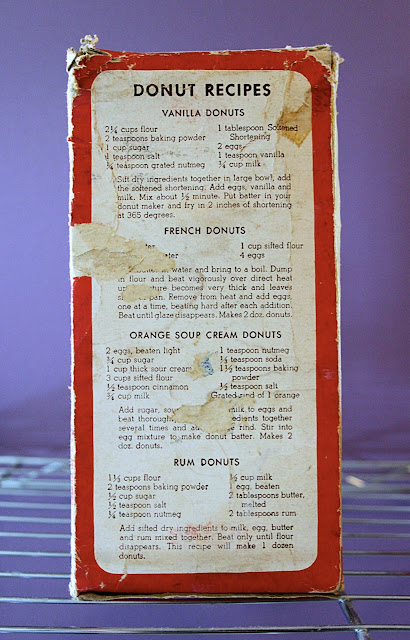 DONUT RECIPES
VANILLA DONUTS
2¼ cups flour
2 teaspoons baking powder
1 cup sugar
1 teaspoon salt
¼ teaspoon grated nutmeg
1 tablespoon Softened
Shortening
2 eggs
1 teaspoon vanilla
¾ cup milk
Sift dry ingredients together in large bowl, add
the softened shortening. Add eggs, vanilla and
milk. Mix about ½ minute. Put batter in your
donut maker and fry in 2 inches of shortening
at 365 degrees.
FRENCH DONUTS
1 cup sifted flour
4 eggs
water and bring to a boil. Dump
in flour and beat vigorously over direct heat
becomes very thick and leaves
pan. Remove from heat and add eggs,
one at a time, beating hard after each addition.
Beat until glaze disappears. Makes 2 doz. donuts.
ORANGE SOUR CREAM DONUTS
2 eggs, beaten light
¾ cup sugar
1 cup thick sour cream
3 cups sifted flour
½ teaspoon cinnamon
¾ cup milk
1 teaspoon nutmeg
teaspoon soda
1½ teaspoons baking
powder
½ teaspoon salt
Grated rind of 1 orange
Add sugar, milk to eggs and
beat thoroughly together
several times and rind. Stir into
egg mixture to make donut batter. Makes 2
doz. donuts.
RUM DONUTS
1½ cups flour
2 teaspoons baking powder
½ cup sugar
½ teaspoon salt
¼ teaspoon nutmeg
½ cup milk
egg, beaten
2 tablespoons butter,
melted
2 tablespoons rum
Add sifted dry ingredients to milk, egg, butter
and rum mixed together. Beat only until flour
disappears. This recipe will make 1 dozen
donuts.